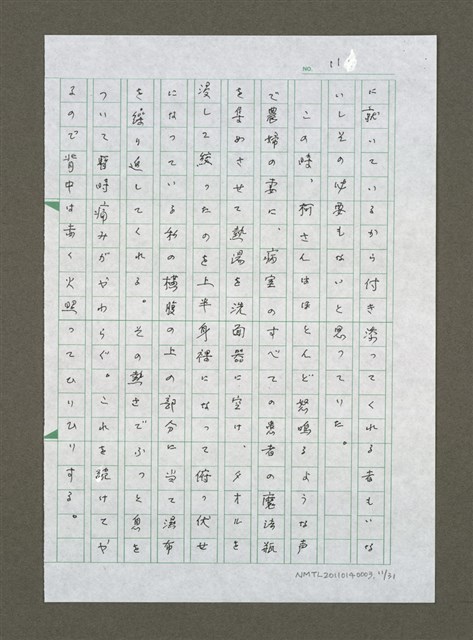 11
NO.
に就いているから付き添ってくれる者もいな
いしその必要もないと思っていた。
この時、柯さんはほとんど怒鳴るような声
で農婦の妻に、病室のすべての患者の魔法瓶
を集めさせて熱湯を洗面器に空け、タオルを
浸して絞ったのを上半身裸になって俯っ伏せ
になっている私の横腹の上の部分に当て湿布
を繰り返してくれる。その熱さでふっと息を
ついて暫時痛みがやわらぐ。これを続けてや
るので背中は赤く火照ってひりひりする。
NMTL20110140003, 11/31